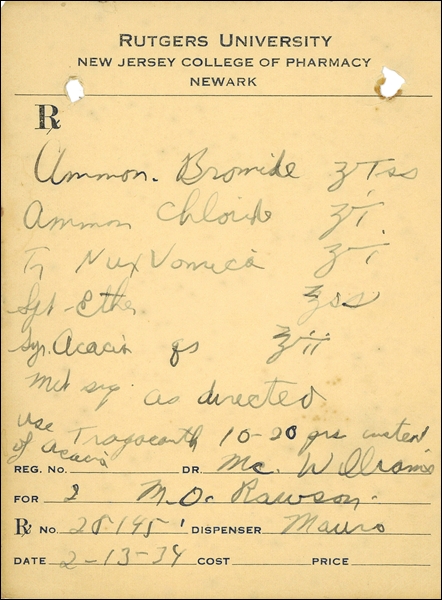 RUTGERS UNIVERSITY
NEW JERSEY COLLEGE OF PHARMACY
NEWARK
℞
Ammon. Bromide ʒiss
Ammon Chloride ʒi
Tr Nux Vomica ʒi
Spt. Ether ʒss
Syr. Acacia qs ʒii
Mft sig. as directed
Use Tragacanth 10-20 grs instead
of acacia
REG. No. DR. Mc. Williams
FOR M. O. Rawson.
℞ No. 28195 DISPENSER Mauro
DATE 2-13-34 COST PRICE